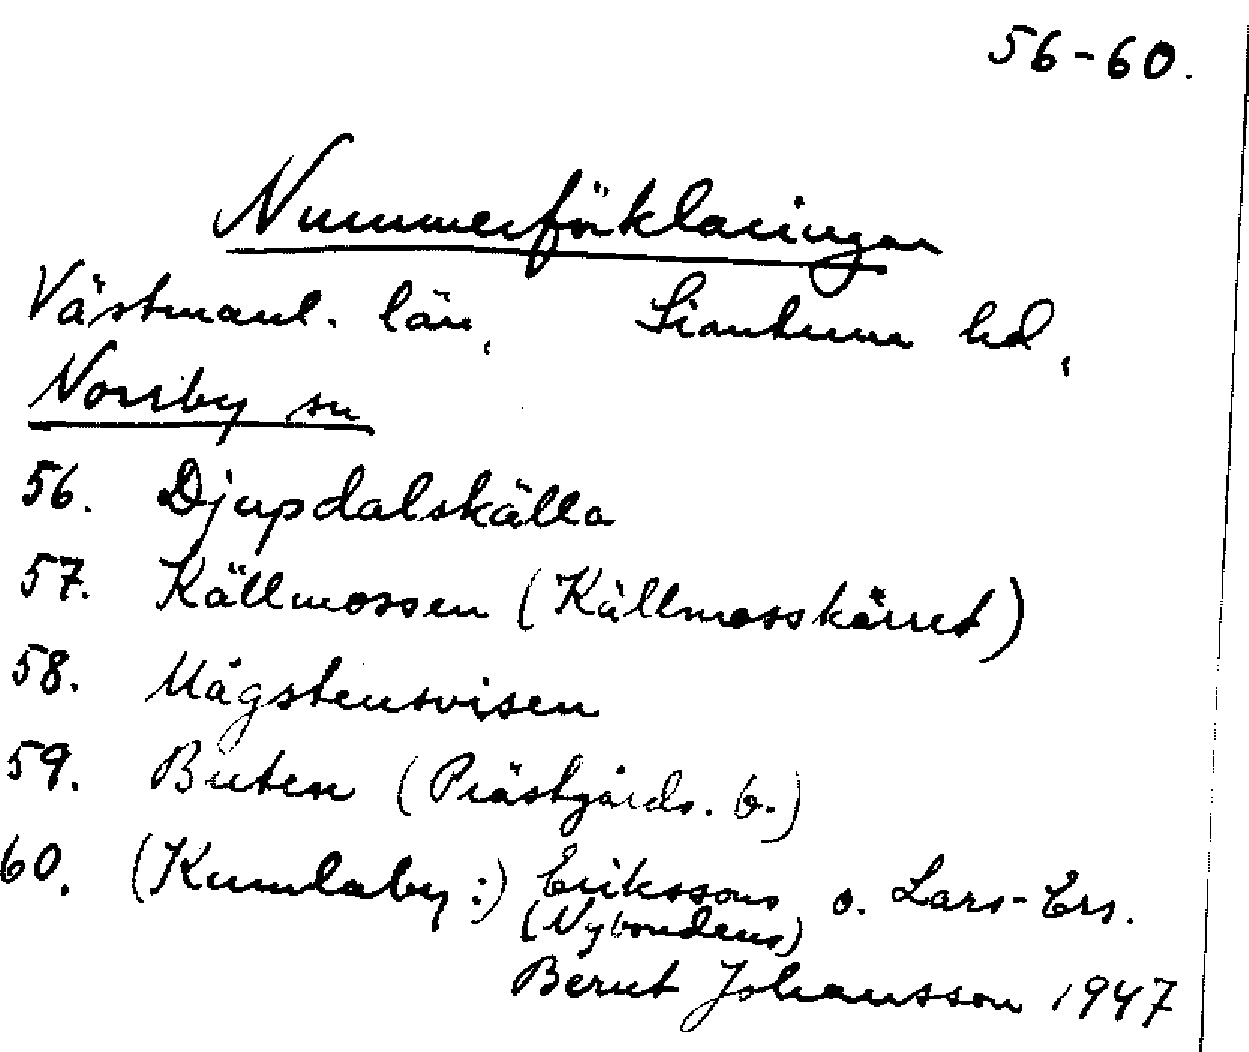 56-60.
Nummerförklaringar
Västmanl. län, Simtuna hd,
Norrby sn
56. Djupdalskälla
57. Källmossen (Källmosskärret)
58. Mågstensvisen
59. Buten (Prästgårds. b.)
60. (Kumlaby:) Erikssons o. Lars-Ers.
(Nybondens)
Bernt Johansson 1947